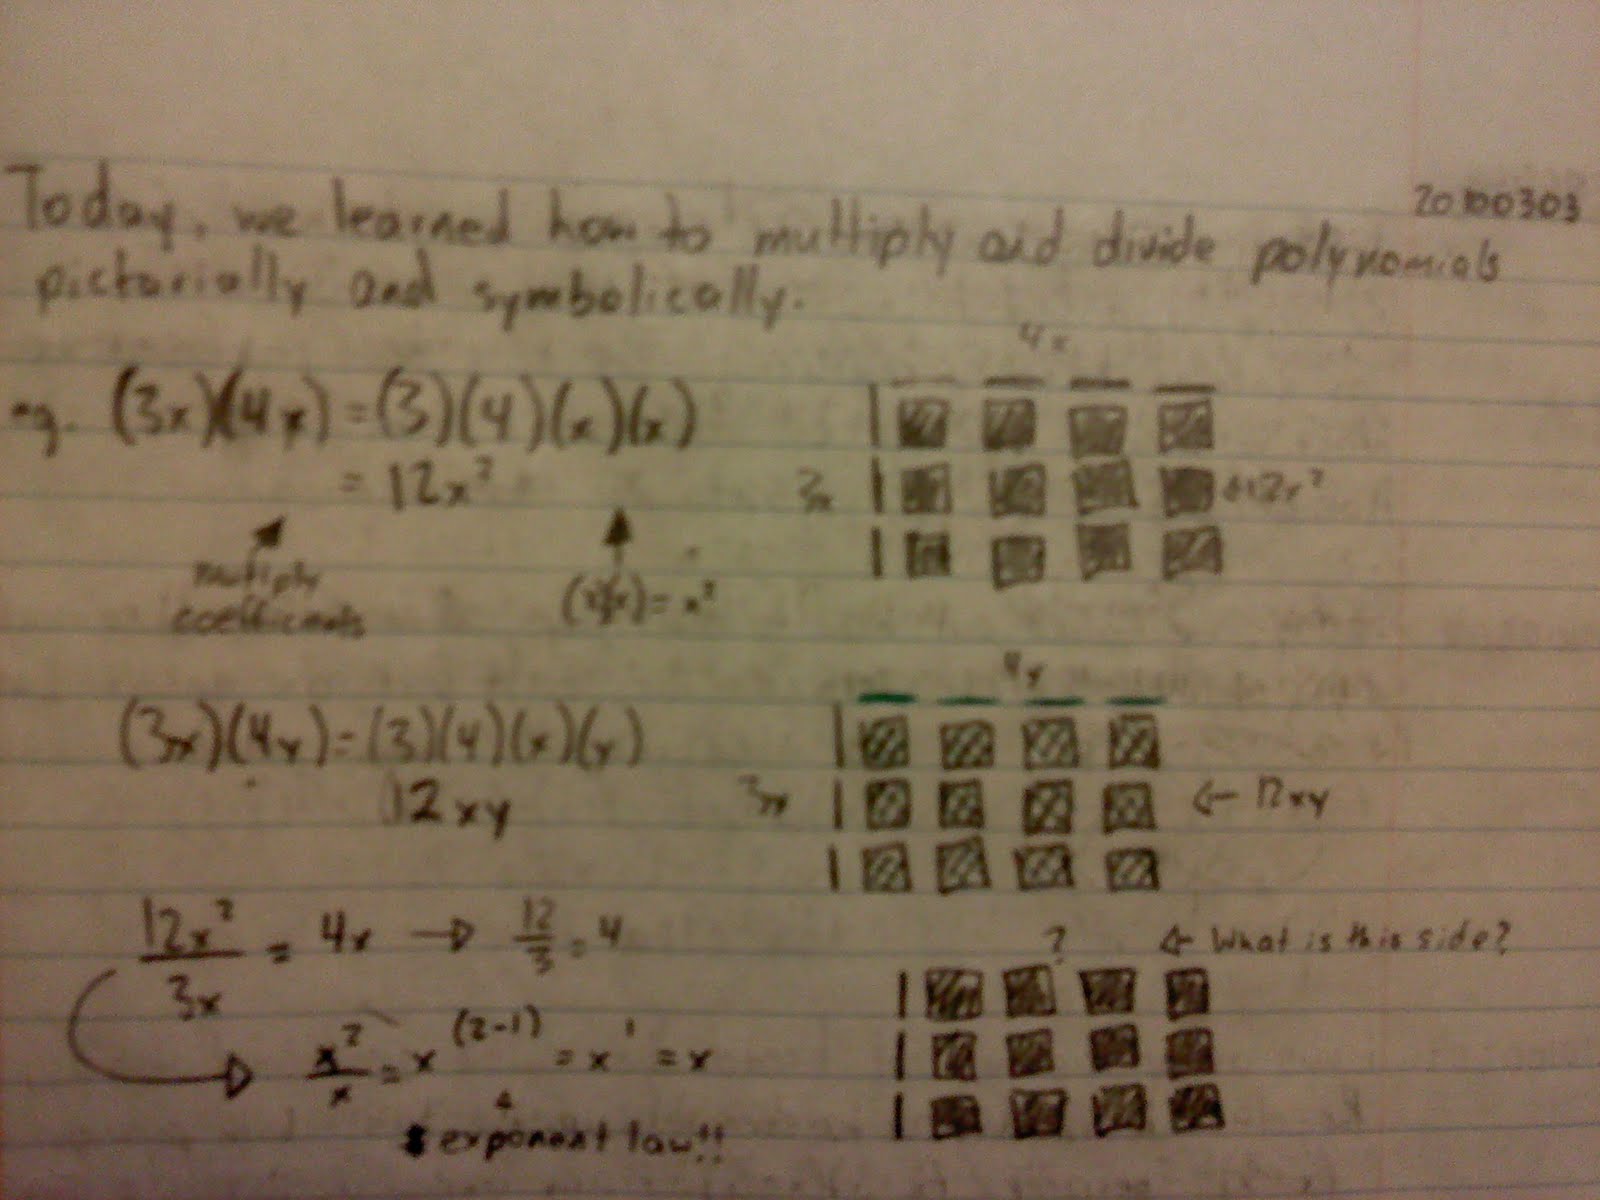 20100303
Today, we learned how to multiply and divide polynomials
pictorially and symbolically.
eg. (3x)(4x) = (3)(4)(x)(x)
= 12x²
multiply
coefficients
(x)(x) = x²
4x
3x
←12x²
(3x)(4y) = (3)(4)(x)(y)
12xy
4y
3x
← 12xy
12x²/3x = 4x → 12/3 = 4
x²/x = x^(2-1) = x^1 = x
exponent law!!
? ← What is this side?